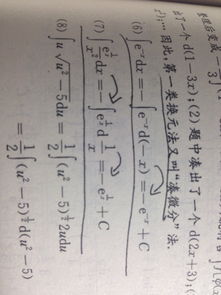 t后变成 -3]
出了一个 d(1-3x); (2) 题中凑出了一个 d(2x+3); (
x²); …因此,第一类换元法又叫“凑微分”法.
(6) ∫e⁻ˣdx = -∫e⁻ˣd(-x) = -e⁻ˣ + C
(7) ∫ e^(1/x)/x² dx = -∫e^(1/x) d 1/x = -e^(1/x) + C
(8) ∫u√(u²-5)du = 1/2 ∫(u²-5)^(1/2) 2udu
= 1/2 ∫(u²-5)^(1/2) d(u²-5)